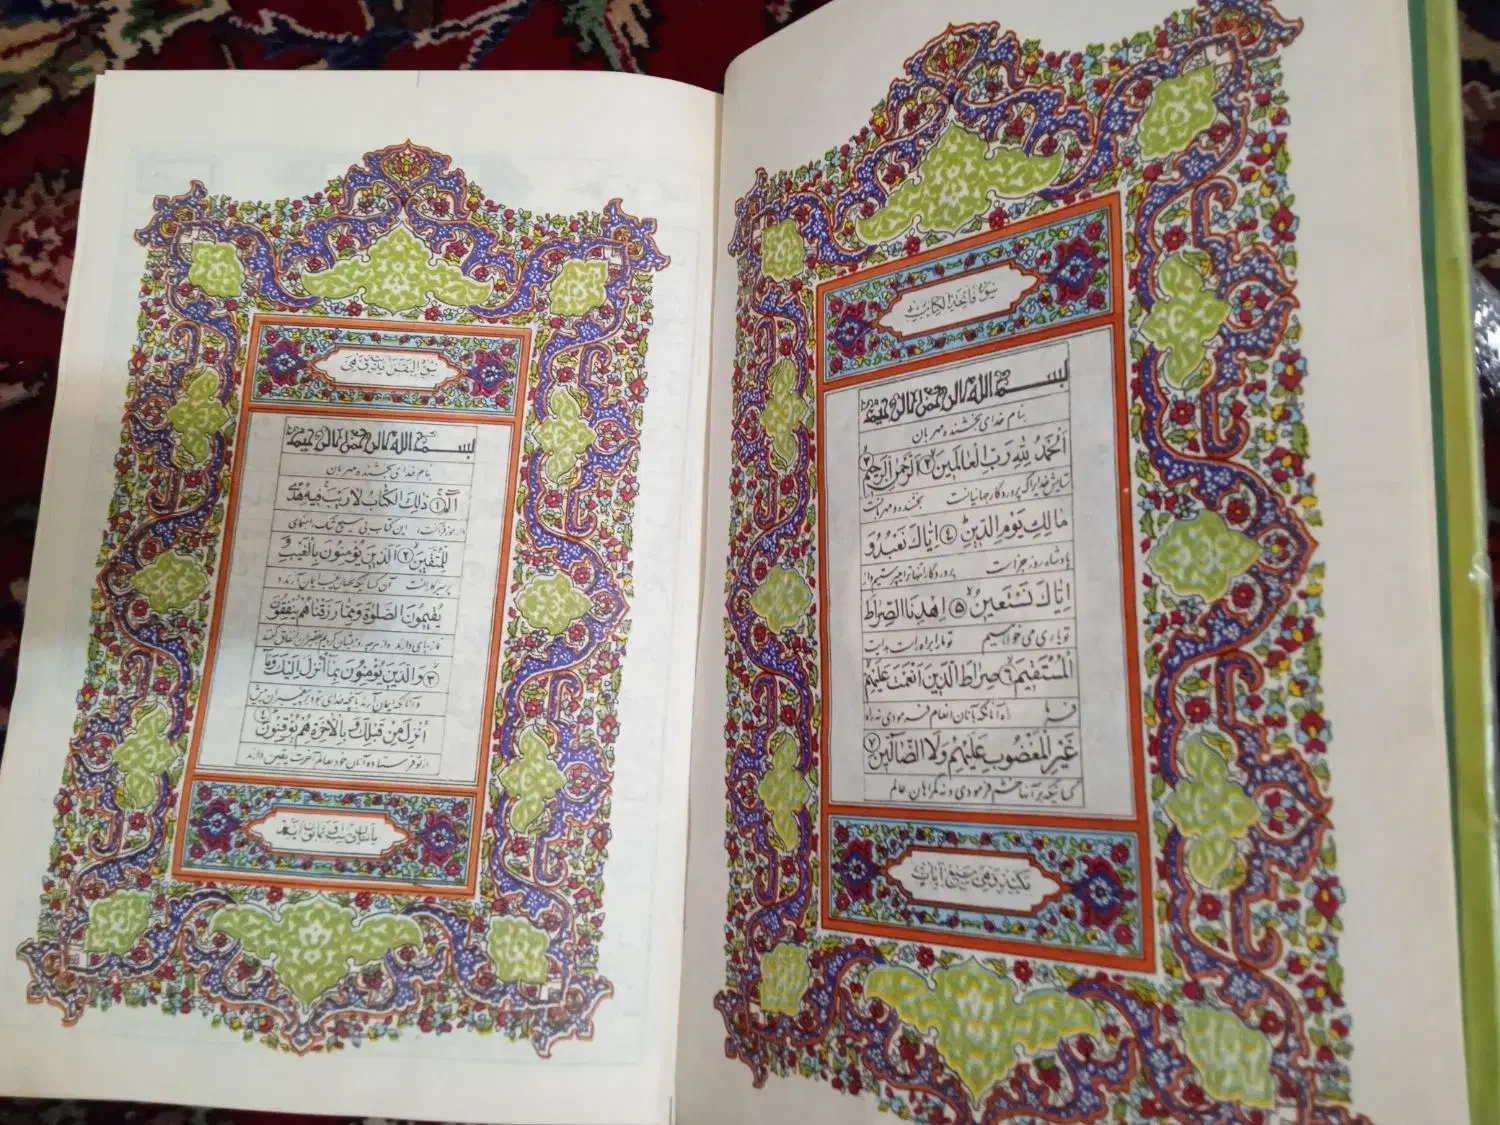 سورة فاتحة الکتاب
بسم الله الرحمن الرحیم
بنام خدای بخشنده مهربان
اَلْحَمْدُ لِلّٰهِ رَبِّ الْعالَمینَ ﴿۲﴾ اَلرَّحْمٰنِ الرَّحیمِ ﴿۳﴾
ستایش خدایراکه پروردگار جهانیانست بخشنده و مهربانست
مالِكِ يَوْمِ الدّينِ ﴿۴﴾ اِيّاكَ نَعْبُدُ وَ
پادشاه روز جزاست پروردگارا تنها ترا میپرستیم و از
اِيّاكَ نَسْتَعينُ ﴿۵﴾ اِهْدِنَا الصِّراطَ
تو یاری می خواهیم تو ما را براه راست هدایت
الْمُسْتَقيمَ ﴿۶﴾ صِراطَ الَّذينَ اَنْعَمْتَ عَلَيْهِمْ
فرما راه آنانکه بآنان انعام فرمودی نه راه
غَيْرِ الْمَغْضُوبِ عَلَيْهِمْ وَلَا الضّالّينَ ﴿۷﴾
کسانیکه بر آنها خشم فرمودی و نه گمراهان عالم
آیات
سورة البقرة
بسم الله الرحمن الرحیم
بنام خدای بخشنده مهربان
الٓمٓ ﴿۱﴾ ذٰلِكَ الْكِتابُ لا رَيْبَ فيهِ هُدًى
این کتاب بی هیچ شک راهنمای
لِلْمُتَّقينَ ﴿۲﴾ اَلَّذينَ يُؤْمِنُونَ بِالْغَيْبِ وَ
پرهیزکارانست آن کسانیکه بجهان غیب ایمان آرند و
يُقيمُونَ الصَّلٰوةَ وَ مِمّا رَزَقْناهُمْ يُنْفِقُونَ
نماز بپای دارند و از هر چه روزیشان کردیم بفقیران انفاق کنند
﴿۳﴾ وَالَّذينَ يُؤْمِنُونَ بِما اُنْزِلَ اِلَيْكَ وَما
و آنانکه ایمان آرند بآنچه خدای بتو و پیغمبران پیش
اُنْزِلَ مِنْ قَبْلِكَ وَ بِالْاٰخِرَةِ هُمْ يُوقِنُونَ ﴿۴﴾
از تو فرستاده و آنان خود بعالم آخرت یقین دارند